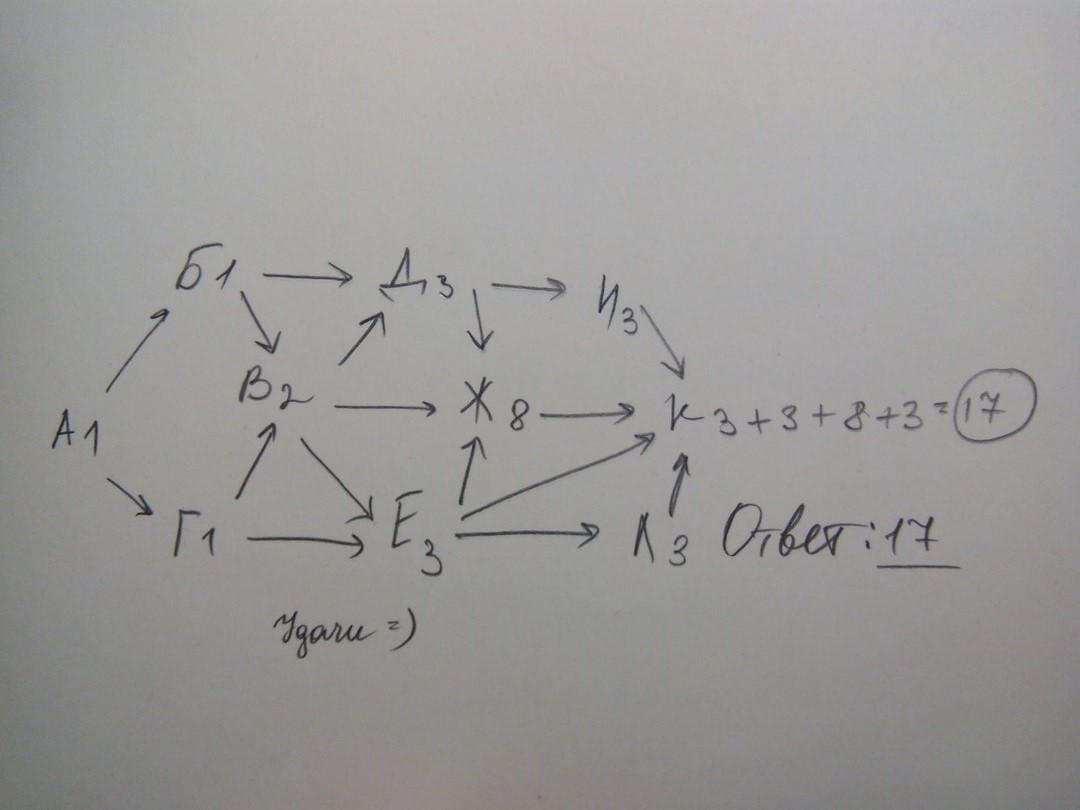 Б1 Д3 И3
В2 Ж8 К 3+3+8+3=17
А1
Г1 Е3 Л3 Ответ: 17
Удачи =)